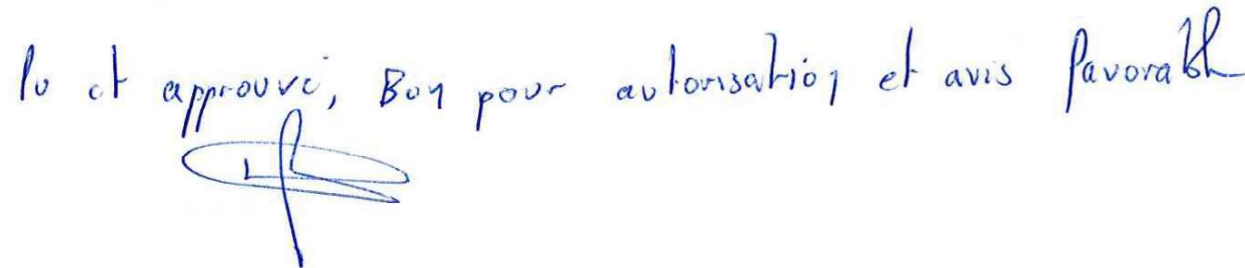 lu et approuvé, Bon pour autorisation et avis favorable